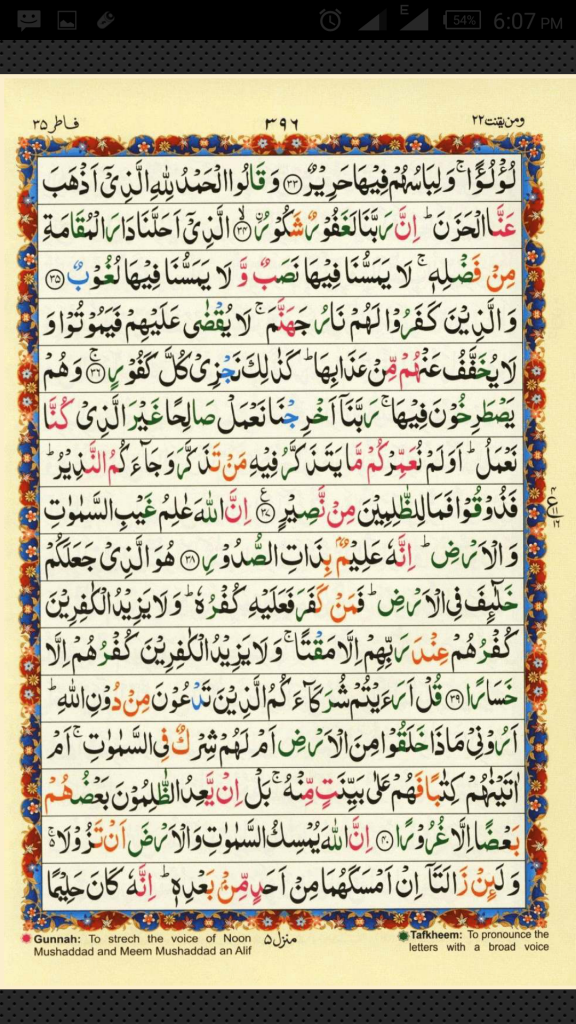 E 54% 6:07 PM
ومن یقنت ۲۲ ۳۹۶ فاطر ۳۵
لُؤْلُؤًا ۚ وَلِبَاسُهُمْ فِيْهَا حَرِيْرٌ ﴿۳۳﴾ وَقَالُوا الْحَمْدُ لِلّٰهِ الَّذِيْۤ اَذْهَبَ
عَنَّا الْحَزَنَ ؕ اِنَّ رَبَّنَا لَغَفُوْرٌ شَكُوْرُ ﴿۳۴﴾ۙ الَّذِيْۤ اَحَلَّنَا دَارَ الْمُقَامَةِ
مِنْ فَضْلِهٖ ۚ لَا يَمَسُّنَا فِيْهَا نَصَبٌ وَّ لَا يَمَسُّنَا فِيْهَا لُغُوْبٌ ﴿۳۵﴾
وَ الَّذِيْنَ كَفَرُوْا لَهُمْ نَارُ جَهَنَّمَ ۚ لَا يُقْضٰى عَلَيْهِمْ فَيَمُوْتُوْا وَ
لَا يُخَفَّفُ عَنْهُمْ مِّنْ عَذَابِهَا ؕ كَذٰلِكَ نَجْزِيْ كُلَّ كَفُوْرٍ ﴿۳۶﴾ۚ وَ هُمْ
يَصْطَرِخُوْنَ فِيْهَا ۚ رَبَّنَاۤ اَخْرِجْنَا نَعْمَلْ صَالِحًا غَيْرَ الَّذِيْ كُنَّا
نَعْمَلُ ؕ اَوَلَمْ نُعَمِّرْكُمْ مَّا يَتَذَكَّرُ فِيْهِ مَنْ تَذَكَّرَ وَ جَآءَكُمُ النَّذِيْرُ ؕ
فَذُوْقُوْا فَمَا لِلظّٰلِمِيْنَ مِنْ نَّصِيْرٍ ﴿۳۷﴾ اِنَّ اللّٰهَ عٰلِمُ غَيْبِ السَّمٰوٰتِ
وَ الْاَرْضِ ؕ اِنَّهٗ عَلِيْمٌۢ بِذَاتِ الصُّدُوْرِ ﴿۳۸﴾ هُوَ الَّذِيْ جَعَلَكُمْ
خَلٰٓئِفَ فِي الْاَرْضِ ؕ فَمَنْ كَفَرَ فَعَلَيْهِ كُفْرُهٗ ؕ وَ لَا يَزِيْدُ الْكٰفِرِيْنَ
كُفْرُهُمْ عِنْدَ رَبِّهِمْ اِلَّا مَقْتًا ۚ وَ لَا يَزِيْدُ الْكٰفِرِيْنَ كُفْرُهُمْ اِلَّا
خَسَارًا ﴿۳۹﴾ قُلْ اَرَءَيْتُمْ شُرَكَآءَكُمُ الَّذِيْنَ تَدْعُوْنَ مِنْ دُوْنِ اللّٰهِ ؕ
اَرُوْنِيْ مَاذَا خَلَقُوْا مِنَ الْاَرْضِ اَمْ لَهُمْ شِرْكٌ فِي السَّمٰوٰتِ ۚ اَمْ
اٰتَيْنٰهُمْ كِتٰبًا فَهُمْ عَلٰى بَيِّنَتٍ مِّنْهُ ۚ بَلْ اِنْ يَّعِدُ الظّٰلِمُوْنَ بَعْضُهُمْ
بَعْضًا اِلَّا غُرُوْرًا ﴿۴۰﴾ اِنَّ اللّٰهَ يُمْسِكُ السَّمٰوٰتِ وَ الْاَرْضَ اَنْ تَزُوْلَا ۚ
وَ لَئِنْ زَالَتَاۤ اِنْ اَمْسَكَهُمَا مِنْ اَحَدٍ مِّنْۢ بَعْدِهٖ ؕ اِنَّهٗ كَانَ حَلِيْمًا
منزل ۵
Gunnah: To strech the voice of Noon
Mushaddad and Meem Mushaddad an Alif
Tafkheem: To pronounce the
letters with a broad voice